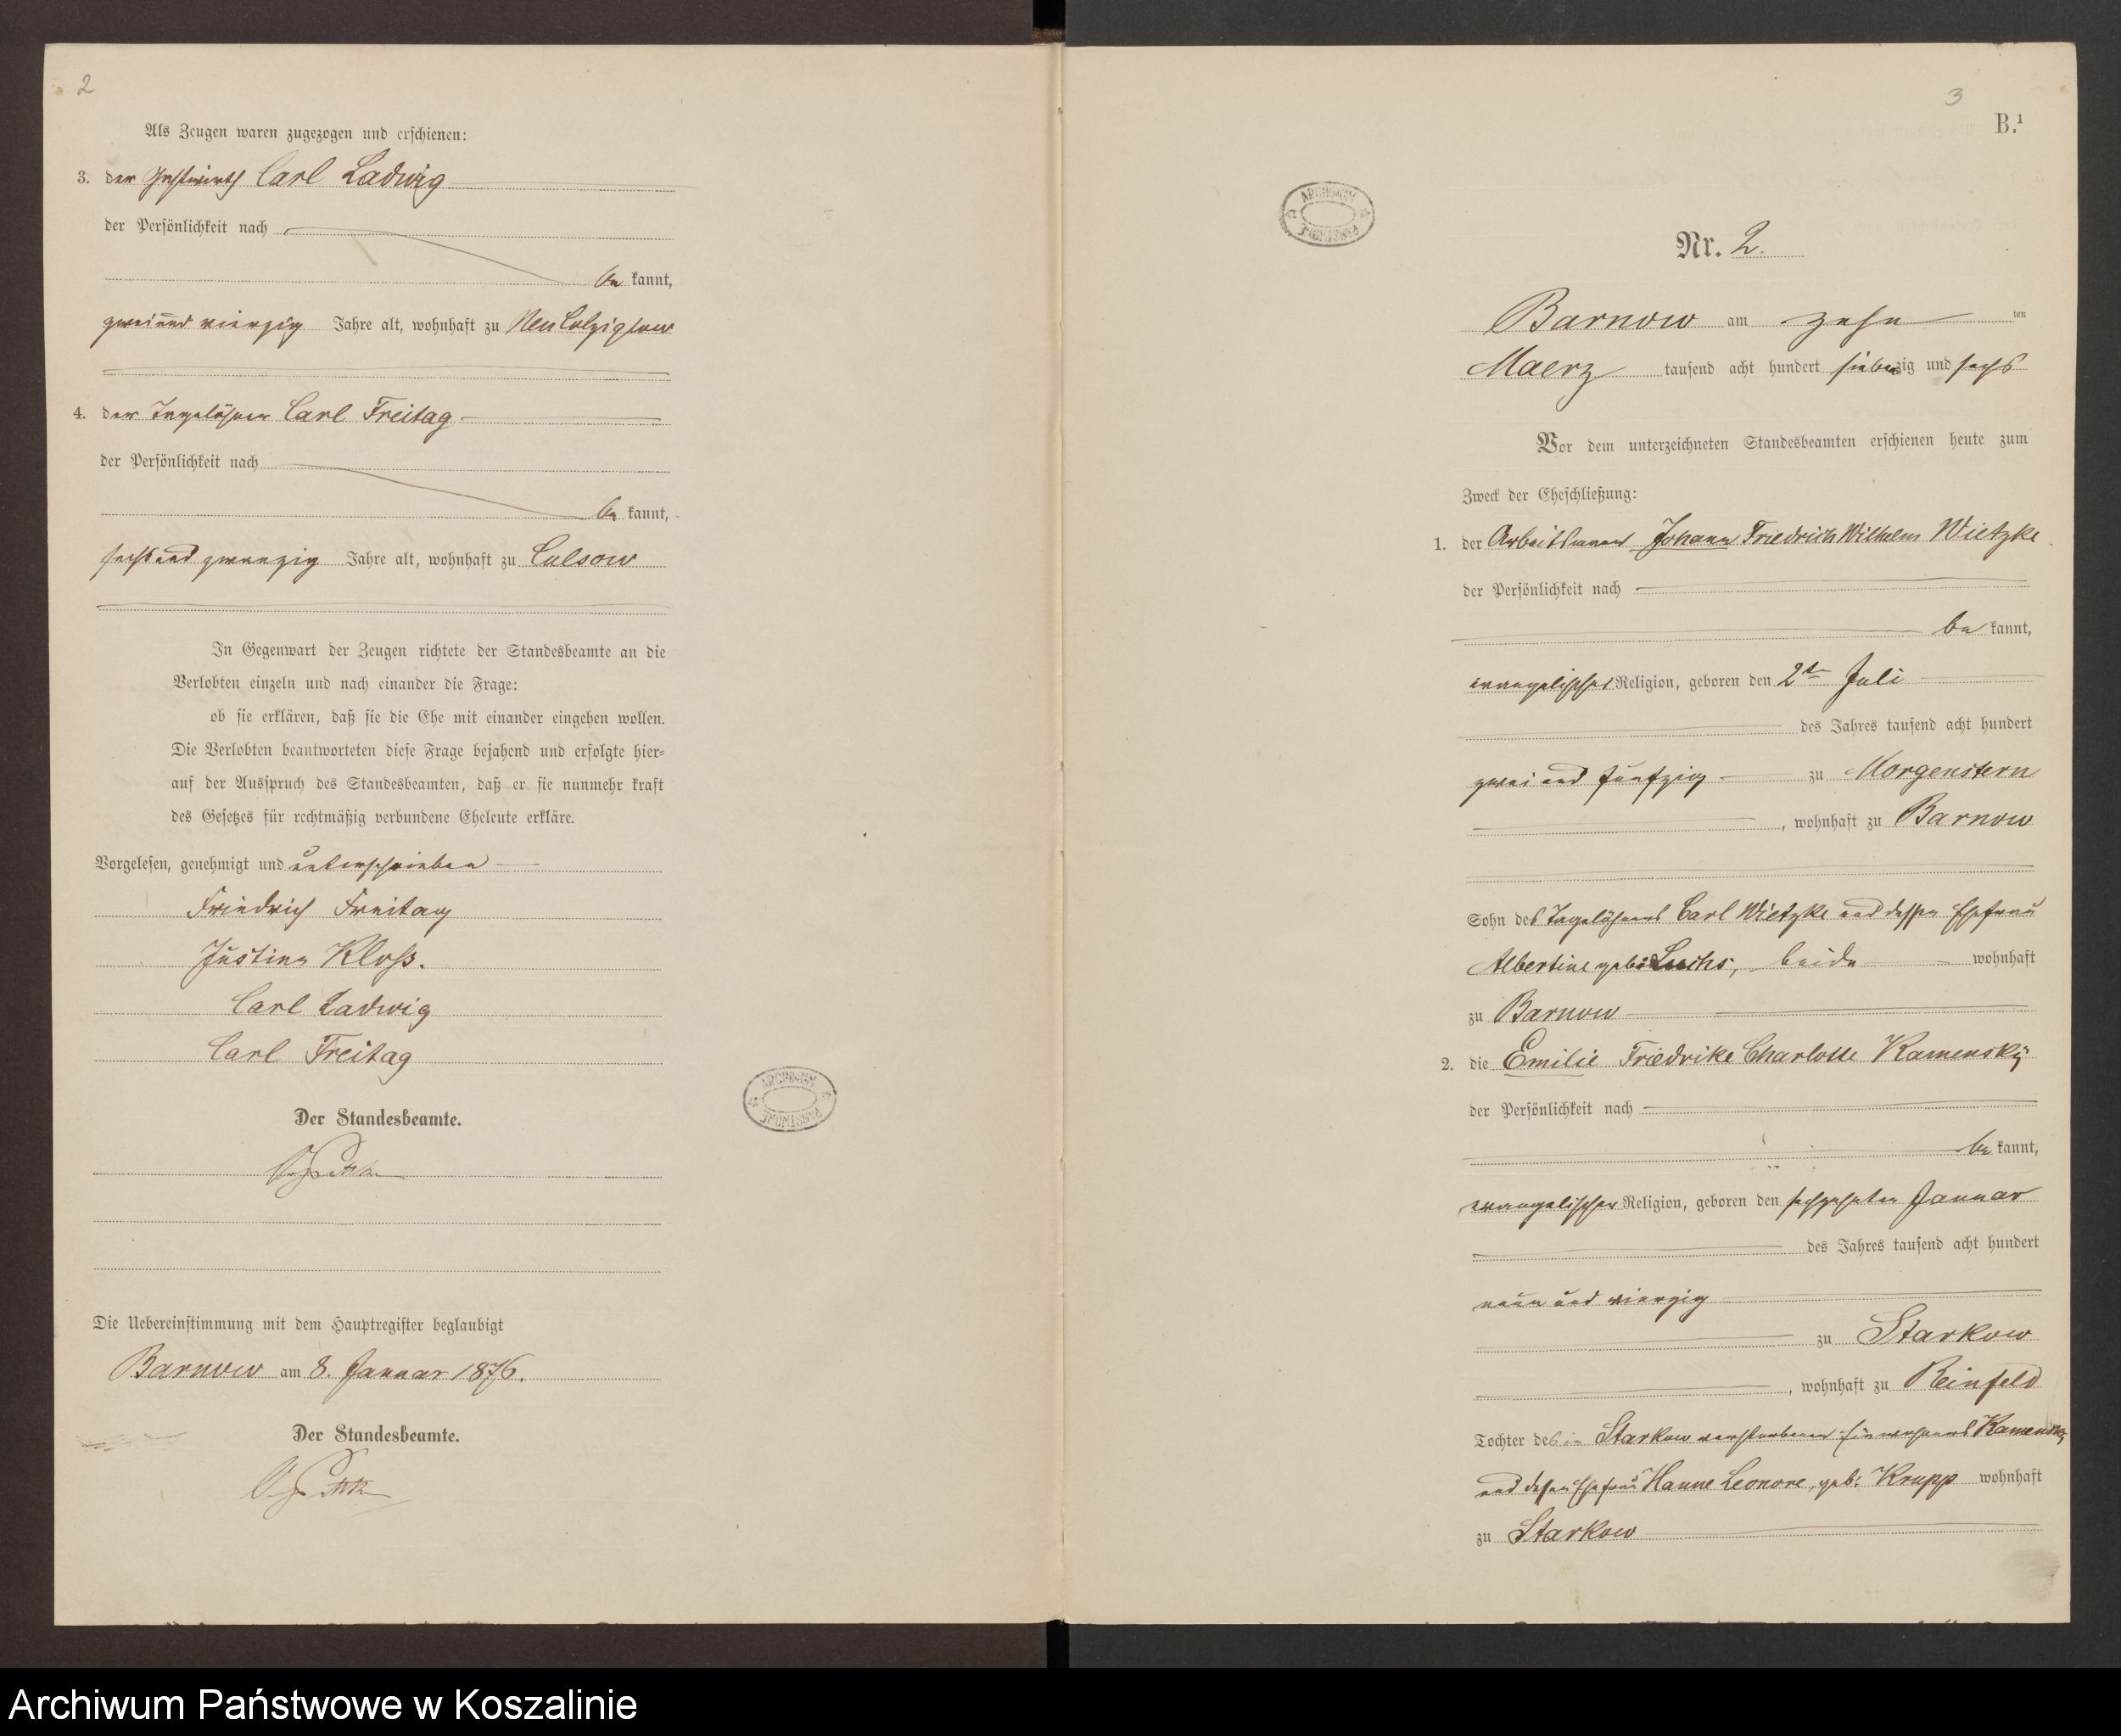 2
Als Zeugen waren zugezogen und erschienen:
3. der Gastwirth Carl Ladwig
der Persönlichkeit nach
be kannt,
zwei und vierzig Jahre alt, wohnhaft zu Neu Colziglow
4. der Tagelöhner Carl Freitag
der Persönlichkeit nach
be kannt,
sechs und zwanzig Jahre alt, wohnhaft zu Culsow
In Gegenwart der Zeugen richtete der Standesbeamte an die
Verlobten einzeln und nach einander die Frage:
ob sie erklären, daß sie die Ehe mit einander eingehen wollen.
Die Verlobten beantworteten diese Frage bejahend und erfolgte hier=
auf der Ausspruch des Standesbeamten, daß er sie nunmehr kraft
des Gesetzes für rechtmäßig verbundene Eheleute erkläre.
Vorgelesen, genehmigt und unterschrieben
Friedrich Freitag
Justine Kloß.
Carl Ladwig
Carl Freitag
Der Standesbeamte.
Die Uebereinstimmung mit dem Hauptregister beglaubigt
Barnow am 8. Januar 1876.
Der Standesbeamte.
ARCHIWUM PAŃSTWOWE
3
B.1
ARCHIWUM PAŃSTWOWE
Nr. 2.
Barnow am zehn ten
Maerz tausend acht hundert siebenzig und sechs
Vor dem unterzeichneten Standesbeamten erschienen heute zum
Zweck der Eheschließung:
1. der Arbeitsmann Johann Friedrich Wilhelm Wietzke
der Persönlichkeit nach
be kannt,
evangelischer Religion, geboren den 2t Juli
des Jahres tausend acht hundert
zwei und fünfzig zu Morgenstern
, wohnhaft zu Barnow
Sohn des Tagelöhners Carl Wietzke und dessen Ehefrau
Albertine geb: Luchs, beide wohnhaft
zu Barnow
2. die Emilie Friedrike Charlotte Kamensky
der Persönlichkeit nach
be kannt,
evangelischer Religion, geboren den sechzehnten Januar
des Jahres tausend acht hundert
neun und vierzig
zu Starkow
, wohnhaft zu Reinfeld
Tochter des in Starkow verstorbenen Einwohners Kamensky
und dessen Ehefrau Hanne Leonore, geb: Krupp wohnhaft
zu Starkow
Archiwum Państwowe w Koszalinie